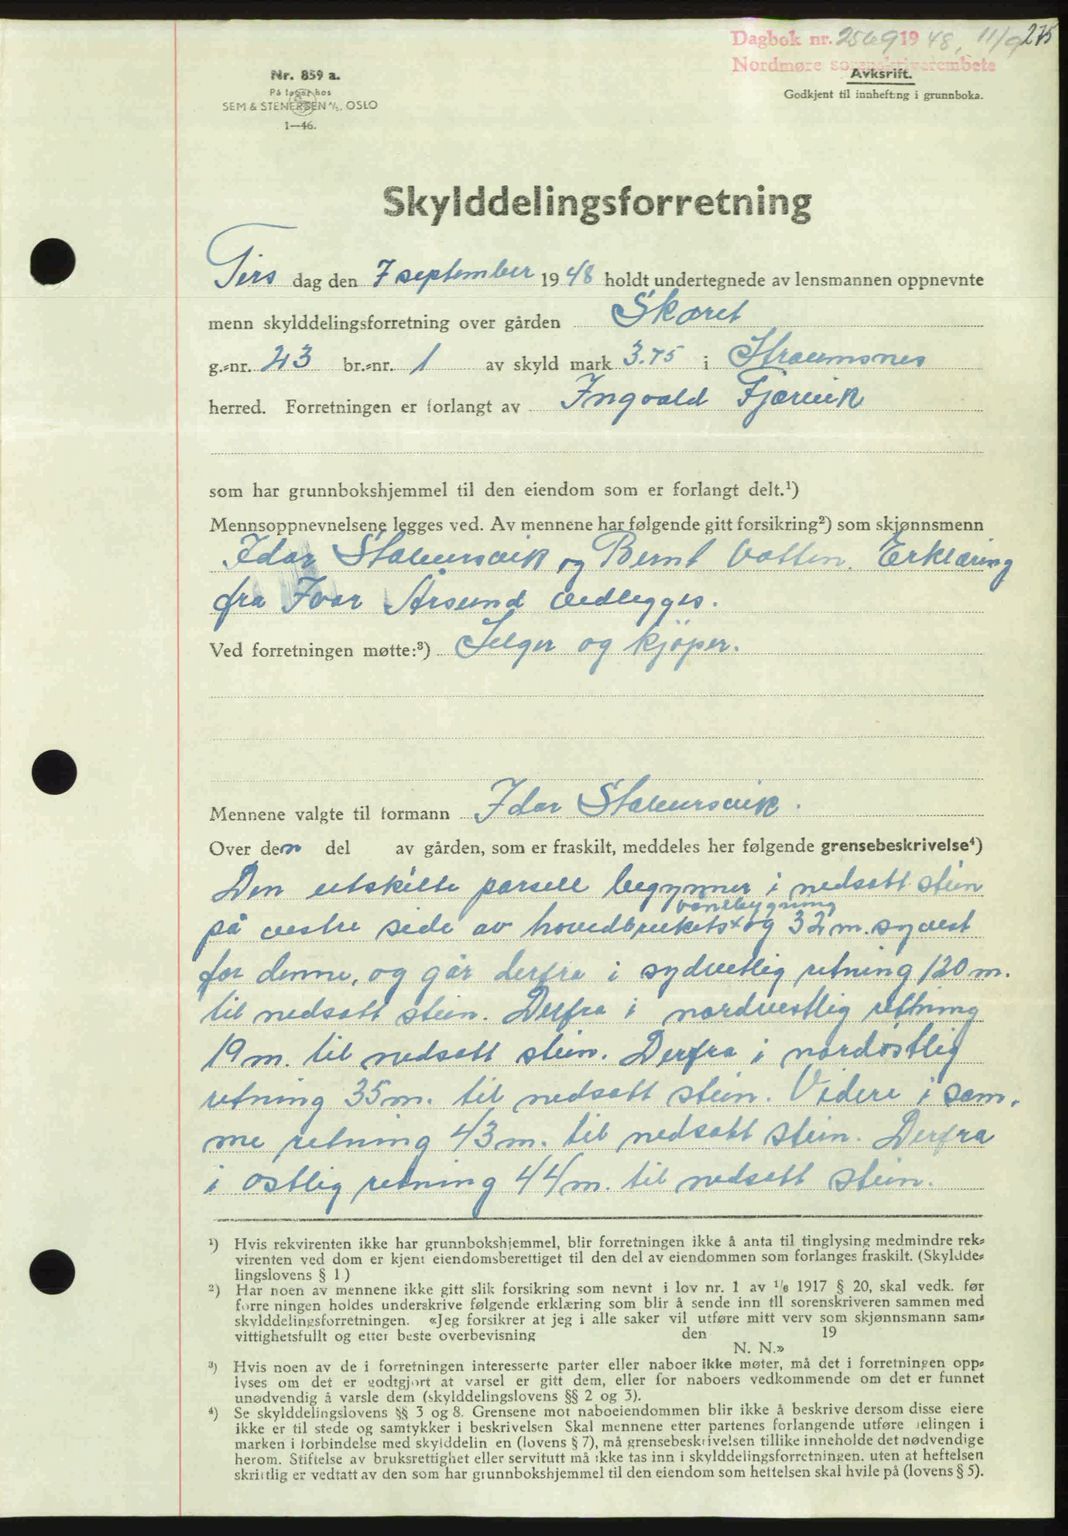 Dagbok nr. 2569 1948, 11/9 275
Nordmøre sorenskriverembete
Nr. 859 a.
På lager hos
SEM & STENERSEN A/S, OSLO
1—46.
Avskrift.
Godkjent til innhefting i grunnboka.
Skylddelingsforretning
Tirs dag den 7 september 1948 holdt undertegnede av lensmannen oppnevnte
menn skylddelingsforretning over gården Skaret
g.-nr. 23 br.-nr. 1 av skyld mark 3.75 i Straumsnes
herred. Forretningen er forlangt av Ingvald Fjærvik
som har grunnbokshjemmel til den eiendom som er forlangt delt.¹)
Mennsoppnevnelsene legges ved. Av mennene har følgende gitt forsikring²) som skjønnsmenn
Idar Stabursvik og Bernt Vatten. Erklæring
fra Ivar Årsund vedlegges.
Ved forretningen møtte:³) Selger og kjøper.
Mennene valgte til formann Idar Stabursvik.
Over den del av gården, som er fraskilt, meddeles her følgende grensebeskrivelse⁴)
Den utskilte parsell begynner i nedsatt stein
vånebygning
på vestre side av hovedbrukets x og 32 m. sydvest
for denne, og går derfra i sydvestlig retning 120 m.
til nedsatt stein. Derfra i nordvestlig retning
19 m. til nedsatt stein. Derfra i nordøstlig
retning 35 m. til nedsatt stein. Videre i sam-
me retning 43 m. til nedsatt stein. Derfra
i østlig retning 44 m. til nedsatt stein.
¹) Hvis rekvirenten ikke har grunnbokshjemmel, blir forretningen ikke å anta til tinglysing medmindre rek-
virenten ved dom er kjent eiendomsberettiget til den del av eiendommen som forlanges fraskilt. (Skyldde-
lingslovens § 1)
²) Har noen av mennene ikke gitt slik forsikring som nevnt i lov nr. 1 av 1/6 1917 § 20, skal vedk. før
forretningen holdes underskrive følgende erklæring som blir å sende inn til sorenskriveren sammen med
skylddelingsforretningen. «Jeg forsikrer at jeg i alle saker vil utføre mitt verv som skjønnsmann sam-
vittighetsfullt og etter beste overbevisning den 19
N. N.»
³) Hvis noen av de i forretningen interesserte parter eller naboer ikke møter, må det i forretningen opp-
lyses om det er godtgjort at varsel er gitt dem, eller for naboers vedkommende om det er funnet
unødvendig å varsle dem (skylddelingslovens §§ 2 og 3).
⁴) Se skylddelingslovens §§ 3 og 8. Grensene mot naboeiendommen blir ikke å beskrive dersom disse eiere
ikke er til stede og samtykker i beskrivelsen Skal mennene etter partenes forlangende utføre delingen i
marken i forbindelse med skylddelingen (lovens § 7), må grensebeskrivelsen tillike inneholde det nødvendige
herom. Stiftelse av bruksrettighet eller servitutt må ikke tas inn i skylddelingsforretningen. uten at heftelsen
skriftlig er vedtatt av den som har grunnbokshjemmel til den eiendom som heftelsen skal hvile på (lovens § 5).